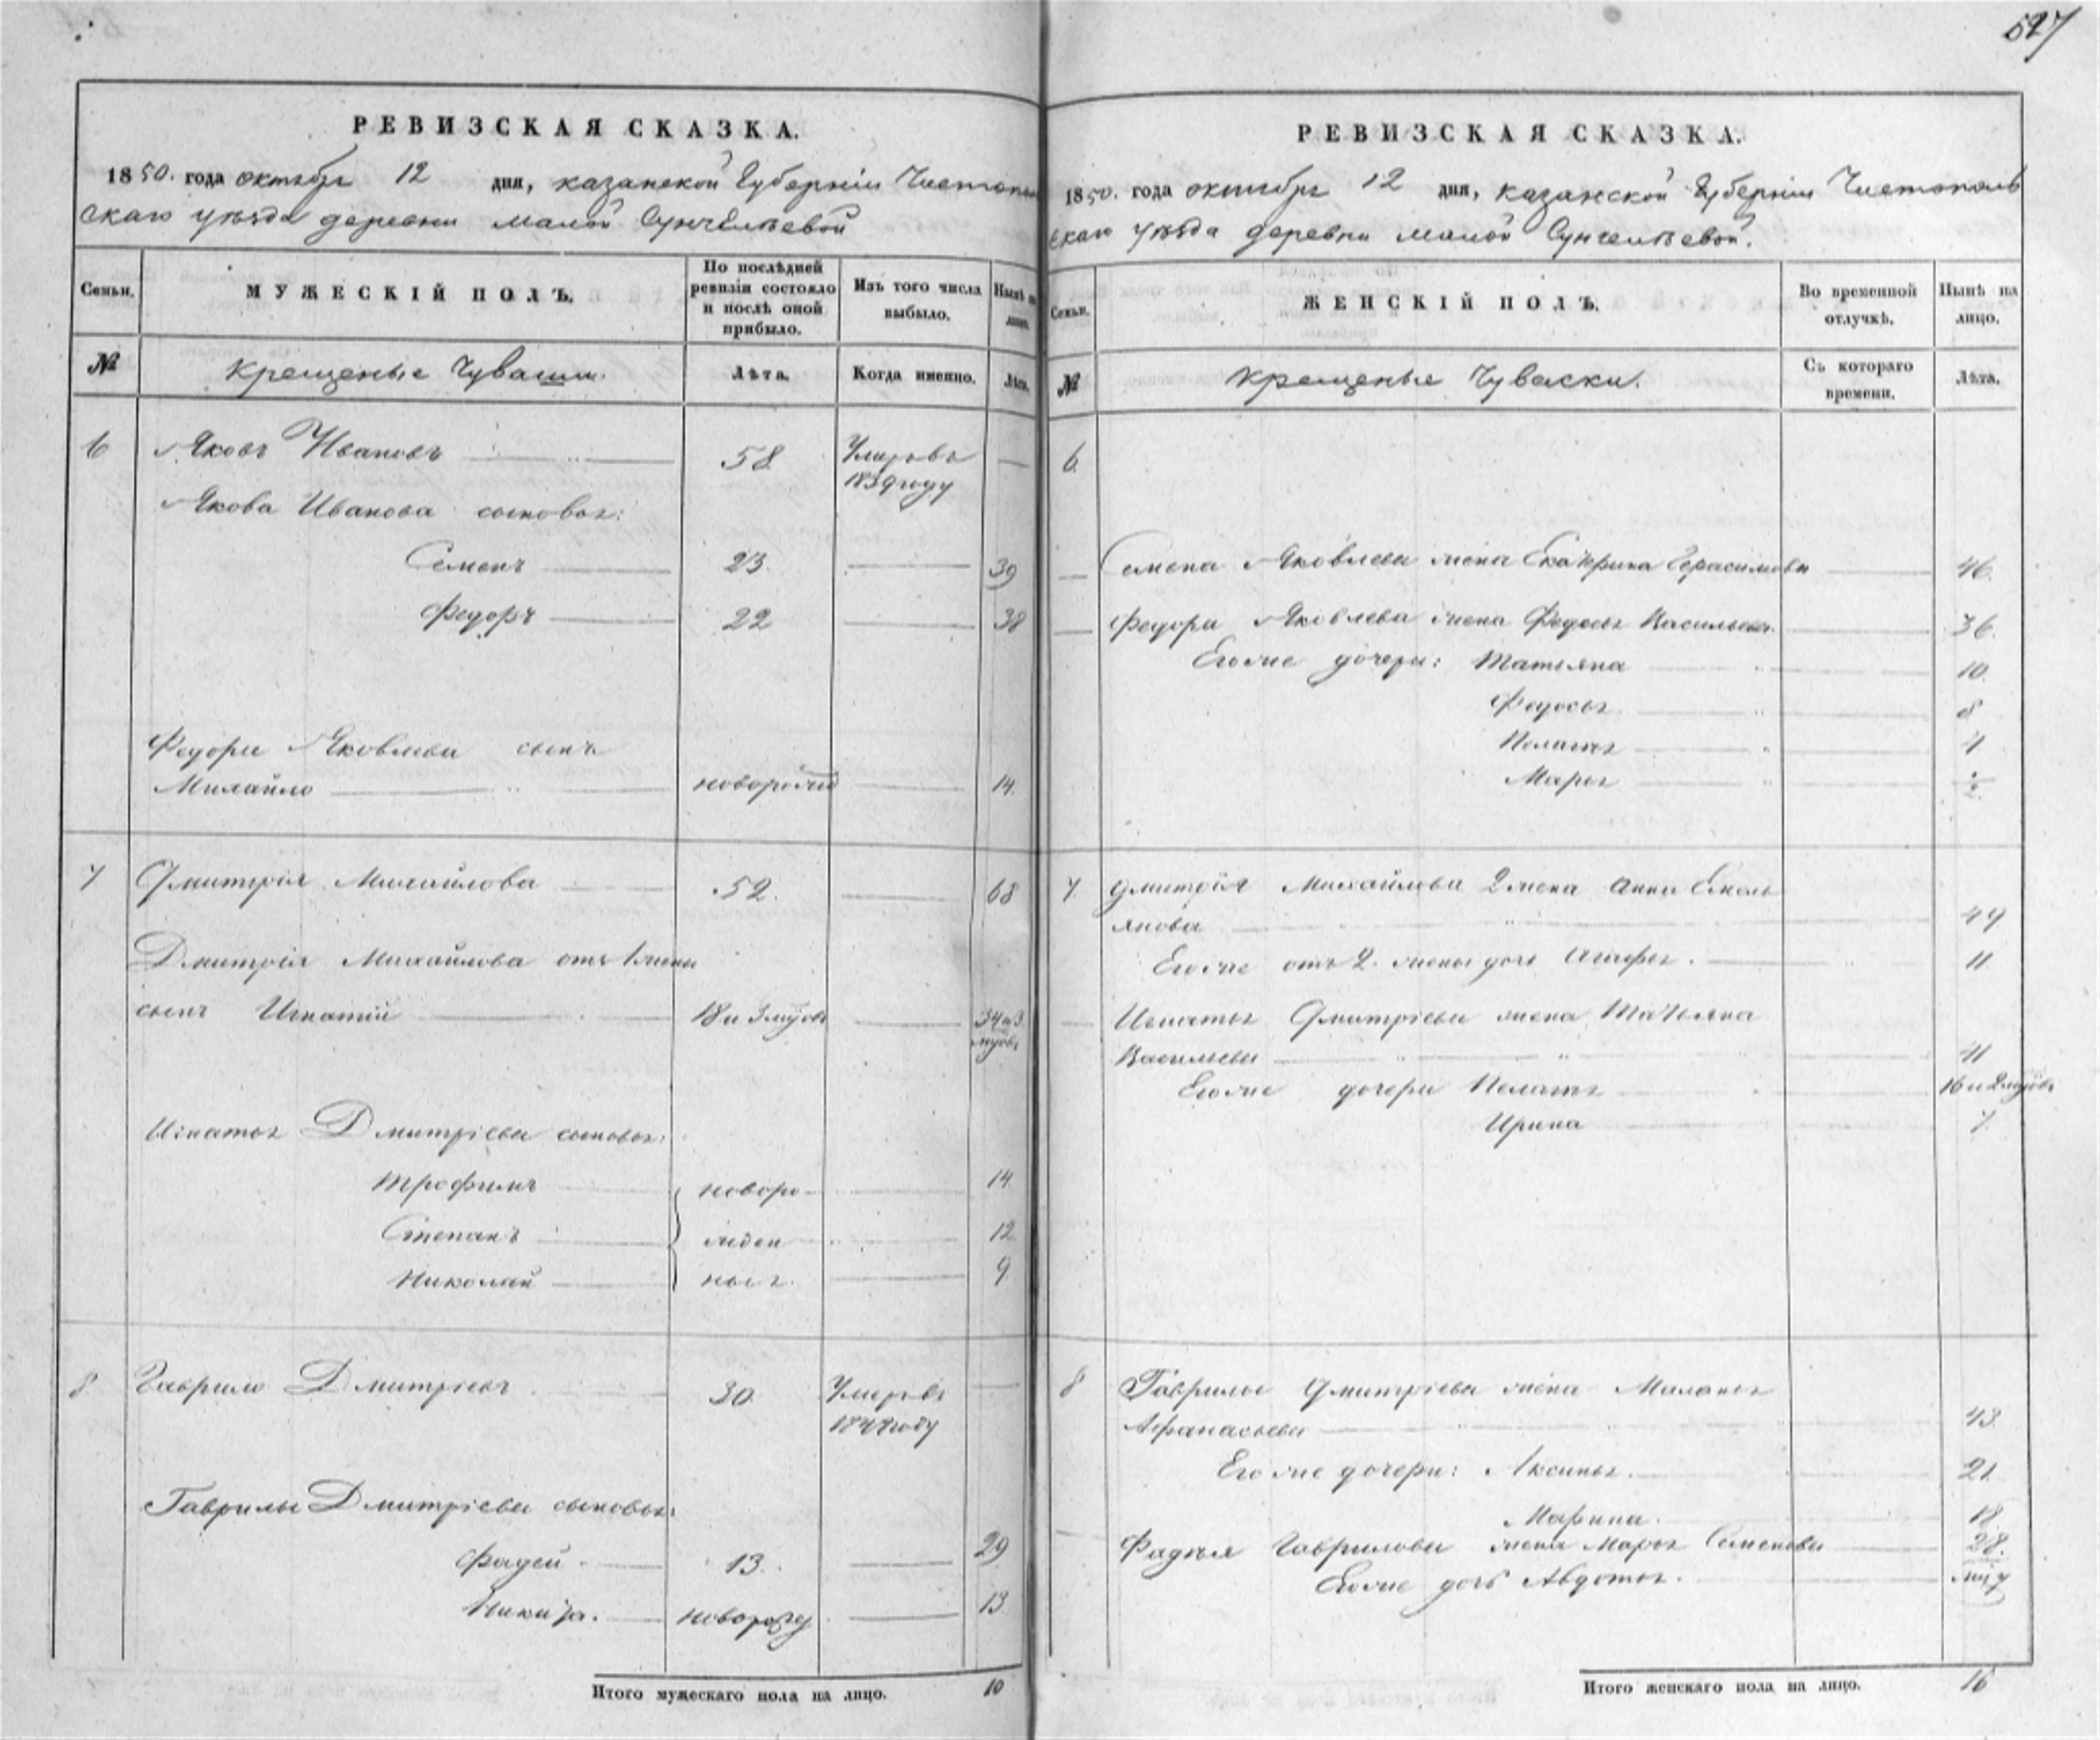 527
РЕВИЗСКАЯ СКАЗКА.
1850. года октября 12 дня, казанской Губерніи Чистополь
скаго уѣзда деревни малой Сунчелѣевой
Семьи. МУЖЕСКІЙ ПОЛЪ. По послѣдней ревизіи состояло и послѣ оной прибыло. Изъ того числа выбыло. Нынѣ на лицо.
№ крещеные Чуваши. Лѣта. Когда именно. Лѣта.
6 Яковъ Ивановъ 58 Умеръ въ —
1839 году
Якова Иванова сыновья:
Семенъ 23 39
Федоръ 22 38
Федора Яковлева сынъ
Михайло новорожд 14.
7 Дмитрія Михайлова 52. 68
Дмитрія Михайлова отъ 1 жены
сынъ Игнатій 18 и 3 мцовъ 34 и 3
мцовъ
Игнатья Дмитріева сыновья:
Трофимъ новоро 14
Степанъ жден 12
Николай ныя 9
8 Гаврило Дмитріевъ 30. Умеръ въ —
году
Гаврилы Дмитріева сыновья:
Фадей 13. 29
Никита. новорожд 13
Итого мужескаго пола на лицо. 10
РЕВИЗСКАЯ СКАЗКА.
1850. года октября 12 дня, казанской Губерніи Чистополь
скаго уѣзда деревни малой Сунчелѣевой.
Семьи. ЖЕНСКІЙ ПОЛЪ. Во временной отлучкѣ. Нынѣ на лицо.
№ крещеные Чуваски. Съ котораго времени. Лѣта.
6.
Семена Яковлева жена Екатерина Герасимова 46.
Федора Яковлева жена Федосья Васильева. 36.
Его же дочери: Татьяна 10.
Федосья 8
Пелагея 4
Марья
7. Дмитрія Михайлова 2 жена Анна Емель
янова 49
Его же отъ 2. жены дочь Агафья. 11
Игнатья Дмитріева жена Татьяна
Васильева 41
Его же дочери Пелагея 16 и 2 мцовъ
Ирина 7
8 Гаврилы Дмитріева жена Маланья
Афанасьева 43.
Его же дочери: Аксинья. 21
Марина. 18
Фадѣя Гаврилова жена Марья Семенова 28.
Его же дочь Авдотья.
Итого женскаго пола на лицо. 16